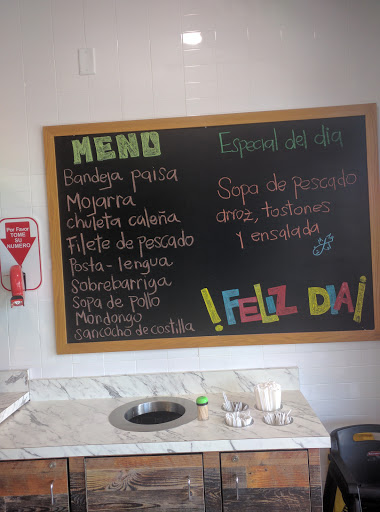 MENU
Bandeja paisa
Mojarra
chuleta caleña
Filete de pescado
Posta - lengua
Sobrebarriga
Sopa de pollo
Mondongo
sancocho de costilla
Especial del dia
Sopa de pescado
arroz, tostones
y ensalada
¡FELIZ DIA!
Por Favor
TOME
SU
NUMERO